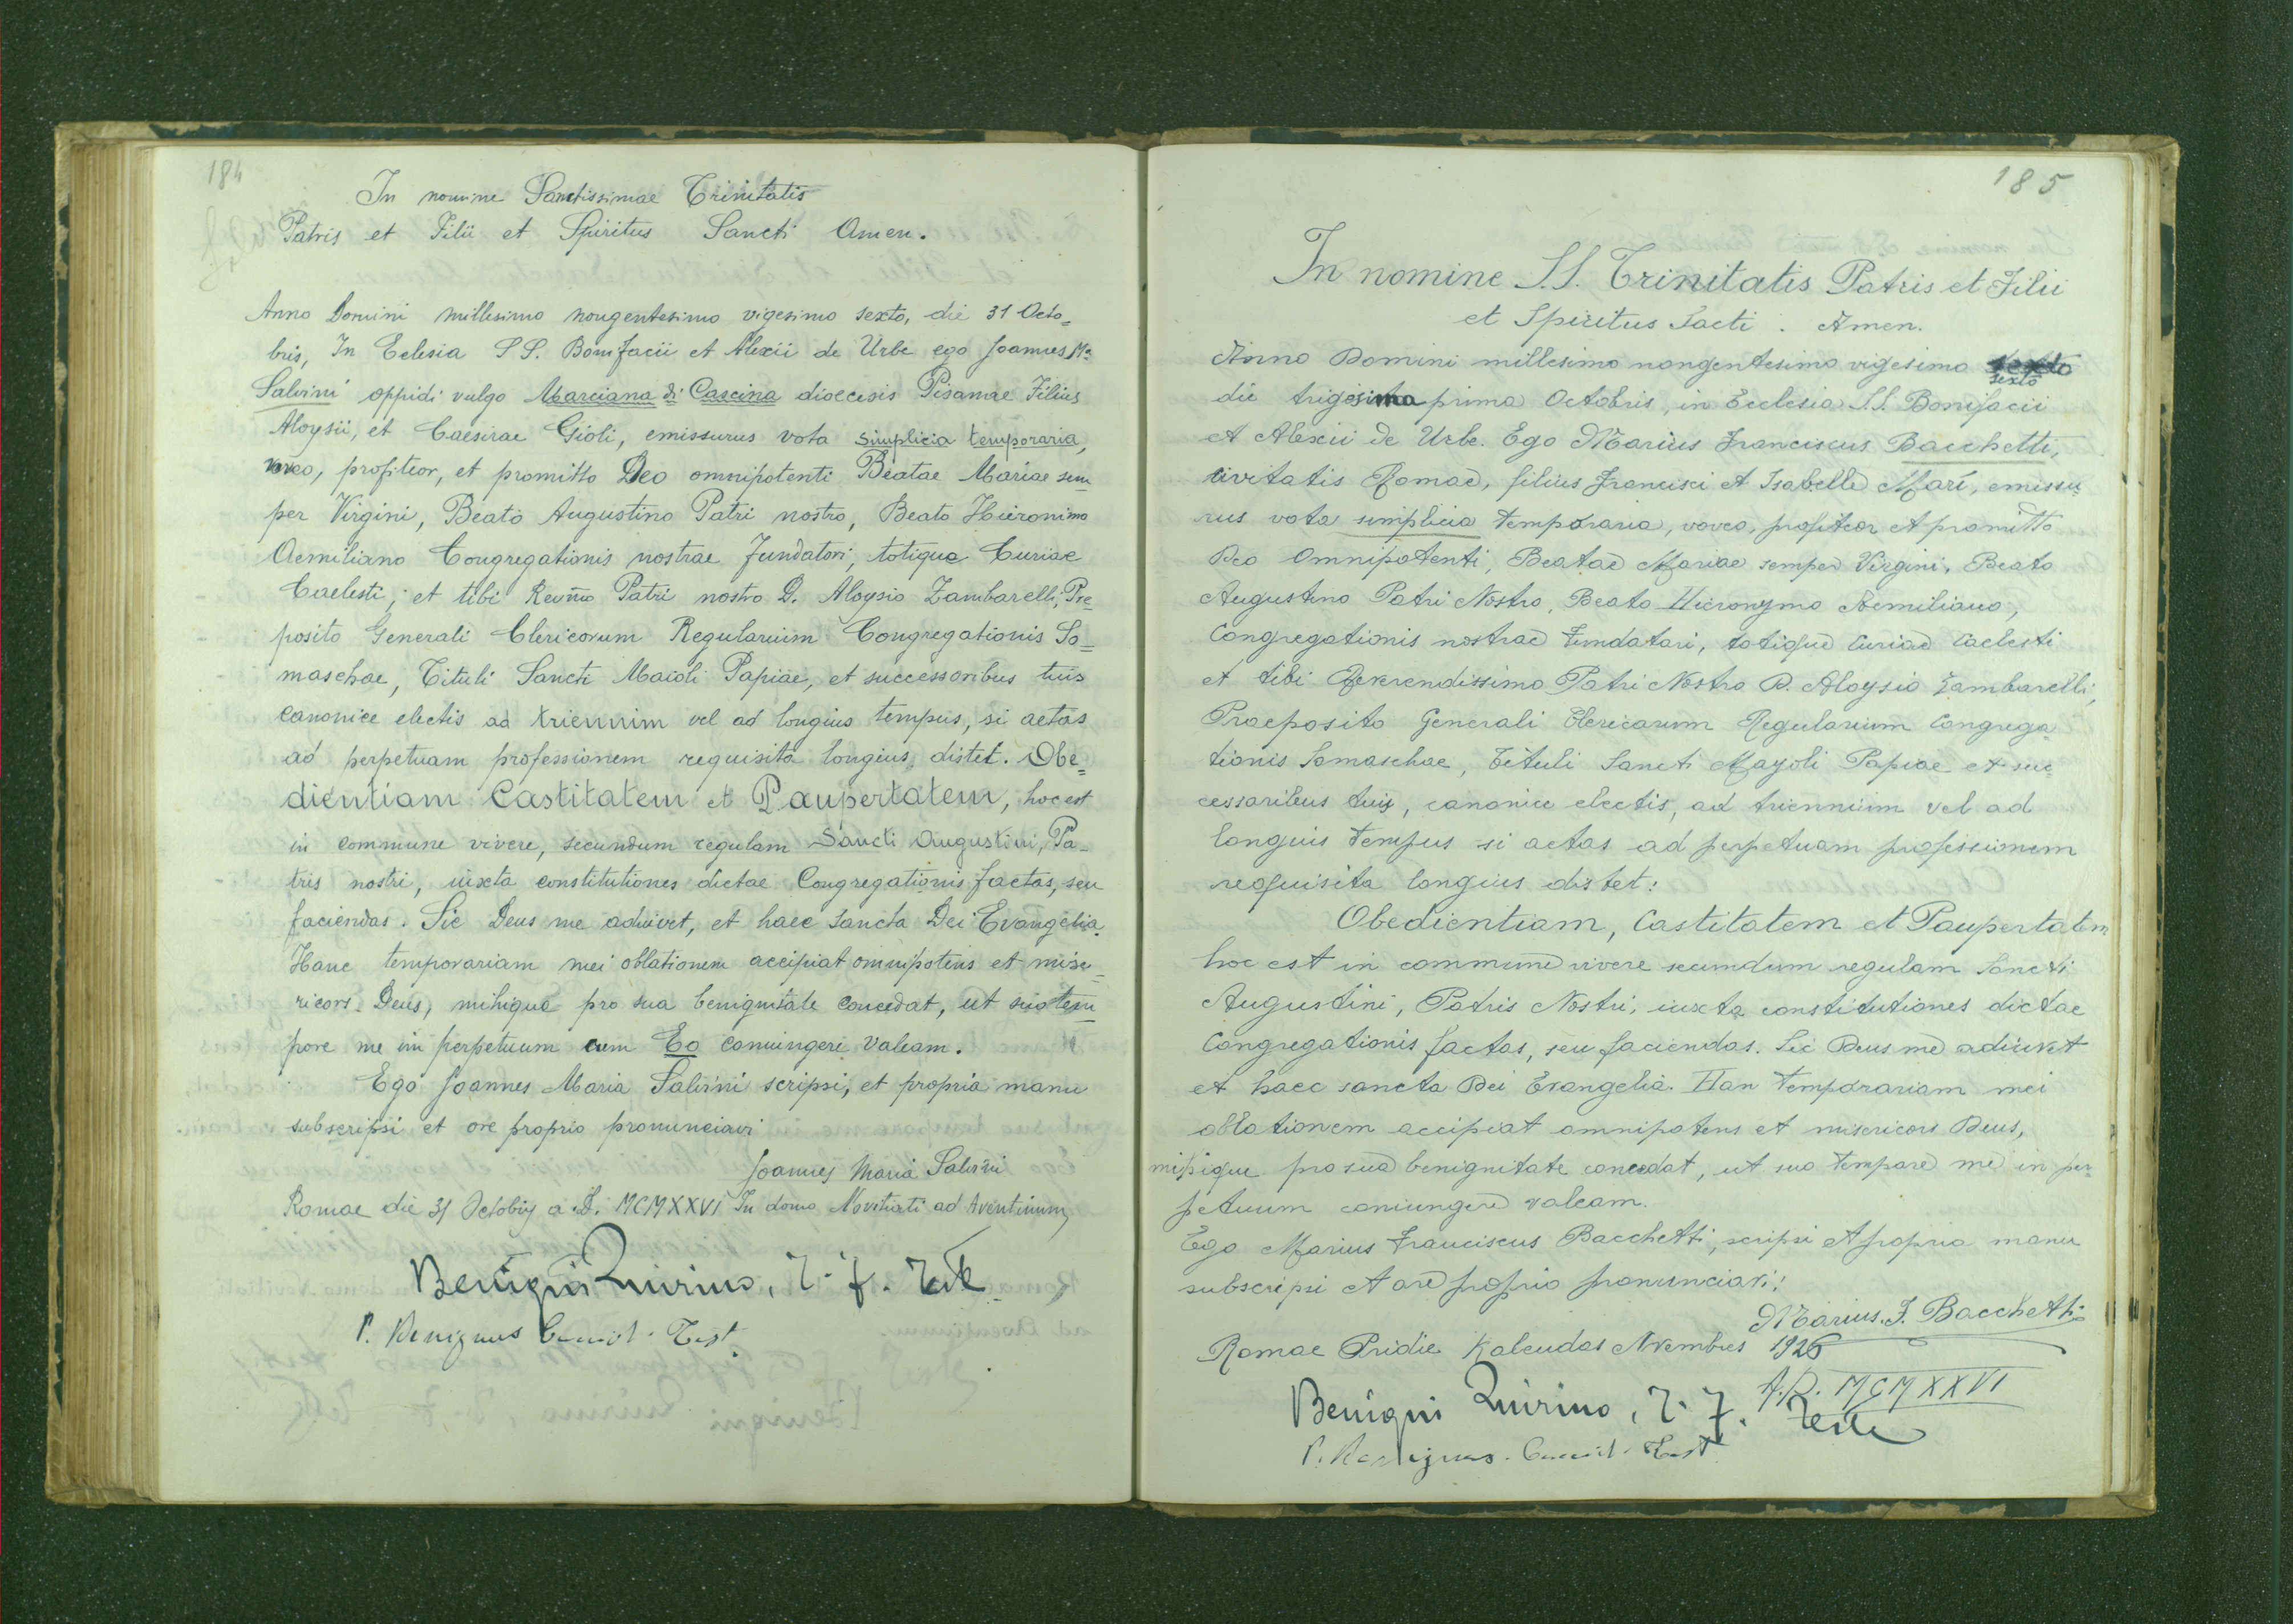 184
In nomine Sanctissimae Trinitatis
Patris et Filii et Spiritus Sancti Amen.
Anno Domini millesimo nongentesimo vigesimo sexto, die 31 Octo=
bris, In Eclesia SS. Bonifacii et Alexii de Urbe ego Joannes Mª
Salvini oppidi vulgo Marciana di Cascina dioecesis Pisanae Filius
Aloysii, et Caesirae Gioli, emissurus vota simplicia temporaria,
voveo, profiteor, et promitto Deo omnipotenti Beatae Mariae sem
per Virgini, Beato Augustino Patri nostro, Beato Hieronimo
Aemiliano Congregationis nostrae fundatori, totique Curiae
Caelesti; et tibi Revm̃o Patri nostro D. Aloysio Zambarelli, Pre=
posito Generali Clericorum Regularium Congregationis So=
maschae, Tituli Sancti Maioli Papiae, et successoribus tuis
canonice electis ad triennim vel ad longius tempus, si aetas
ad perpetuam professionem requisita longius distet. Obe=
dientiam Castitatem et Paupertatem, hoc est
in commune vivere, secundum regulam Sancti Augustini, Pa-
tris nostri, iuxta constitutiones dictae Congregationis factas, seu
faciendas. Sic Deus me adiuvet, et haec sancta Dei Evangelia.
Hanc temporariam mei oblationem accipiat omnipotens et mise=
ricors Deus, mihique pro sua benignitate concedat, ut suo tem
pore me in perpetuum cum Eo coniungere valeam.
Ego Joannes Maria Salvini scripsi, et propria manu
subscripsi et ore proprio pronunciavi
Joannes Maria Salvini
Romae die 31 Octobris a D. MCMXXVI In domo Novitiati ad Aventinum
Benigni Quirino, T. f. Teste
P. Benignus Test.
185
In nomine S.S. Trinitatis Patris et Filii
et Spiritus Sacti. Amen.
Anno Domini millesimo nongentesimo vigesimo sexto
sexto
die trigesima prima Octobris, in Ecclesia S.S. Bonifacii
et Alexii de Urbe. Ego Marius Franciscus Bacchetti,
civitatis Romae, filius Francisci et Isabelle Mari, emissu
rus vota simplicia temporaria, voveo, profiteor et promitto
Deo Omnipotenti, Beatae Mariae semper Virgini, Beato
Augustino Patri Nostro, Beato Hieronymo Aemiliano,
Congregationis nostrae Fundatari, totique Curiae Caelesti
et tibi Reverendissimo Patri Nostro D. Aloysio Zambarelli,
Praeposito Generali Clericorum Regularium Congrega
tionis Somaschae, Tituli Sancti Mayoli Papiae et suc
cessoribus tuis, canonice electis, ad triennium vel ad
longuis tempus si aetas ad perpetuam professionem
requisita longius distet:
Obedientiam, Castitatem et Paupertatem
hoc est in commune vivere secundum regulam Sancti
Augustini, Patris Nostri, iuxta constitutiones dictae
Congregationis factas, seu faciendas. Sic Deus me adiuvet
et haec sancta Dei Evangelia. Han temporariam mei
oblationem accipiat omnipotens et misericors Deus,
mihique pro sua benignitate concedat, ut suo tempore me in per-
petuum coniungere valeam.
Ego Marius Franciscus Bacchetti, scripsi et propria manu
subscripsi et ore proprio pronunciavi:
Marius. F. Bacchetti
Romae Pridie Kalendas Novembres 1926
A.D. MCMXXVI
Benigni Quirino, T. f. Teste
P. Benignus Test.